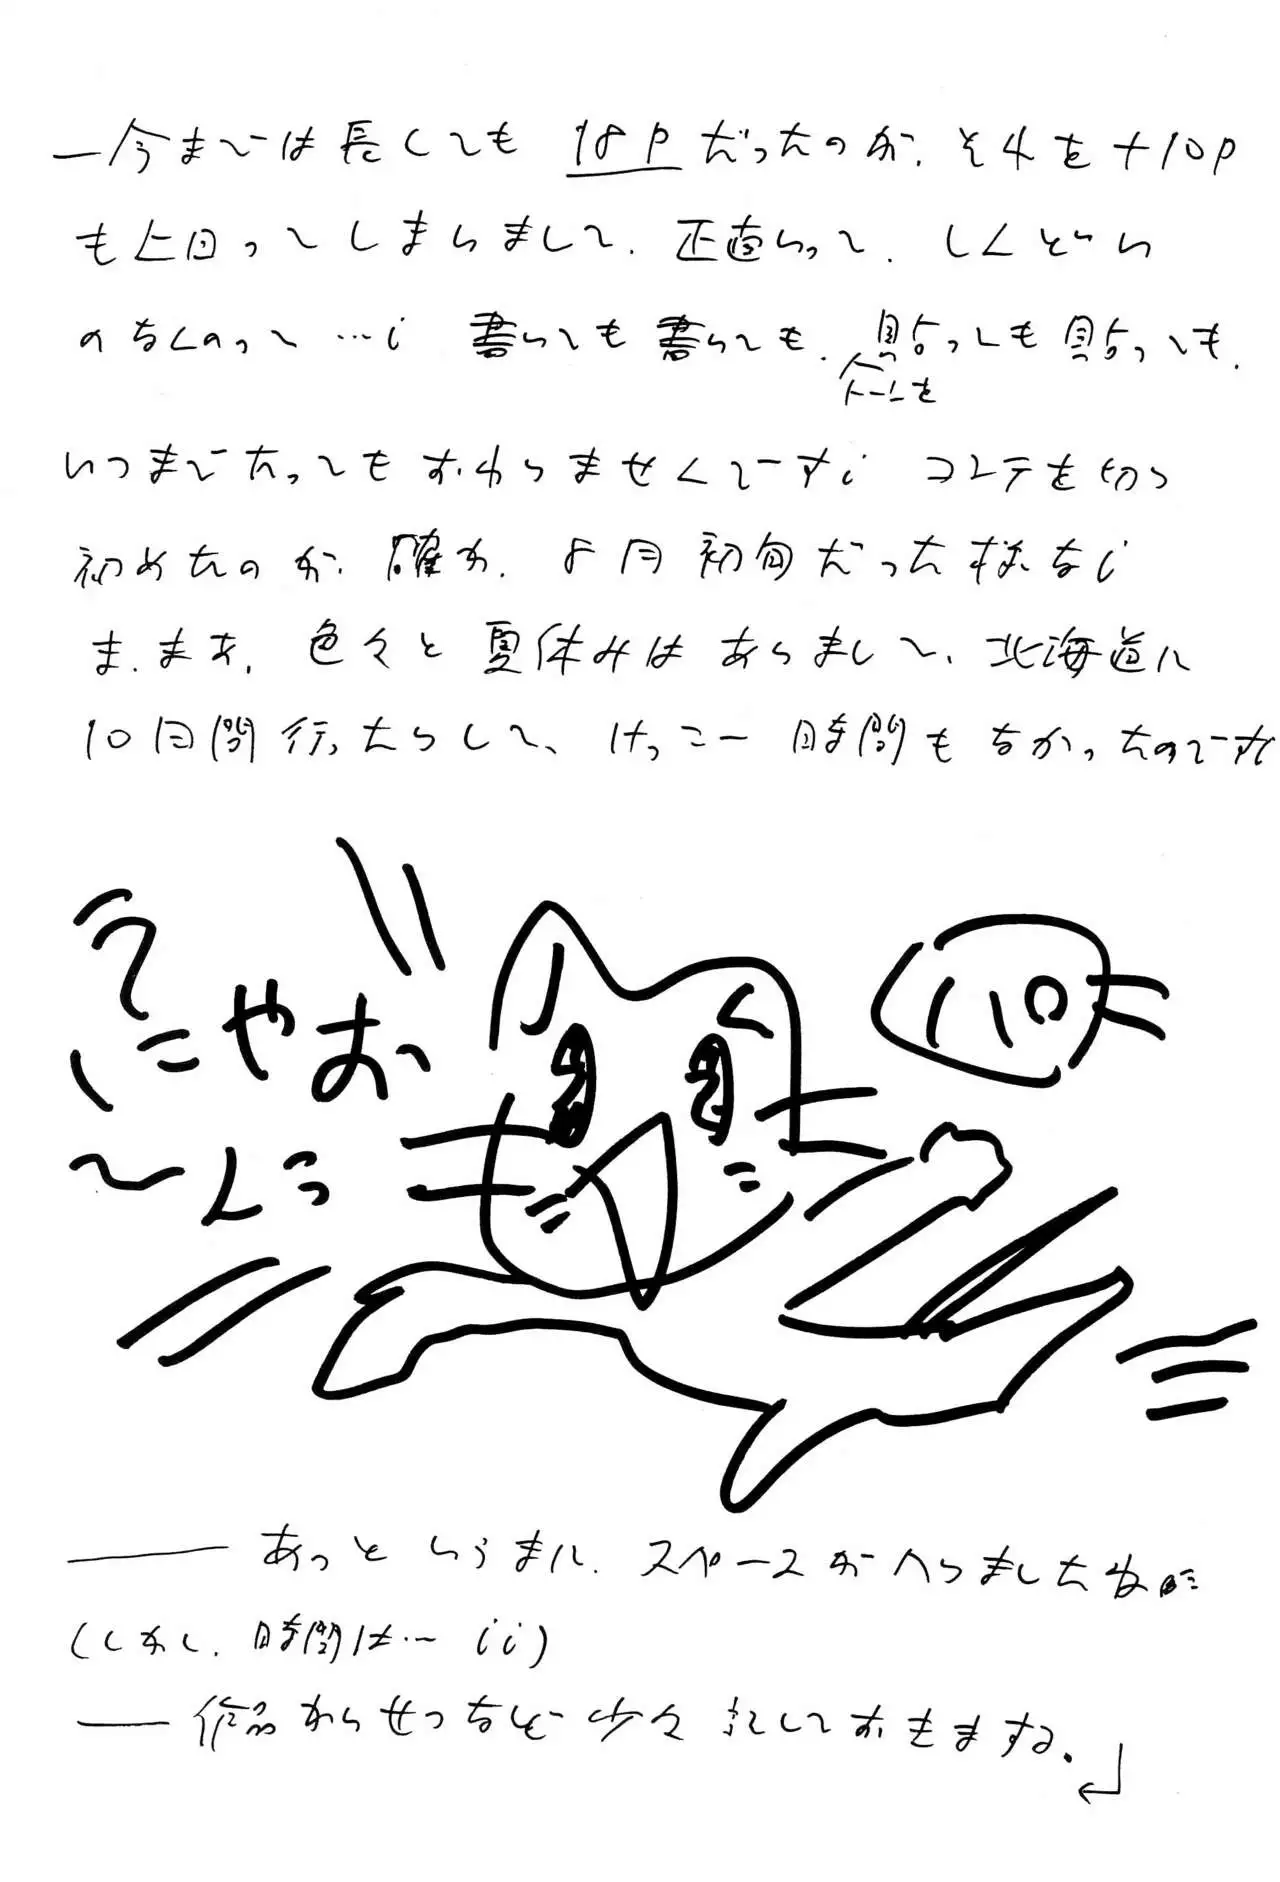 ―今までは長くても 18Pだったのが、それを+10P
も上回ってしまいまして、正直いって、しんどい
のなんのって…; 書いても書いても、貼っても貼っても、
トーンを
いつまでたってもおわりませんでーす; コンテを切り
初めたのが、確か、8月初旬だった様な;
ま、まあ、色々と夏休みはありまして、北海道に
10日間行ったりして、けっこー時間もなかったのですが
にやお
〜んっ
―― あっというまに、スペースがへりましたな
(しかし、時間は… ;;)
―― 作品かいせつなど少々記しておきまする。